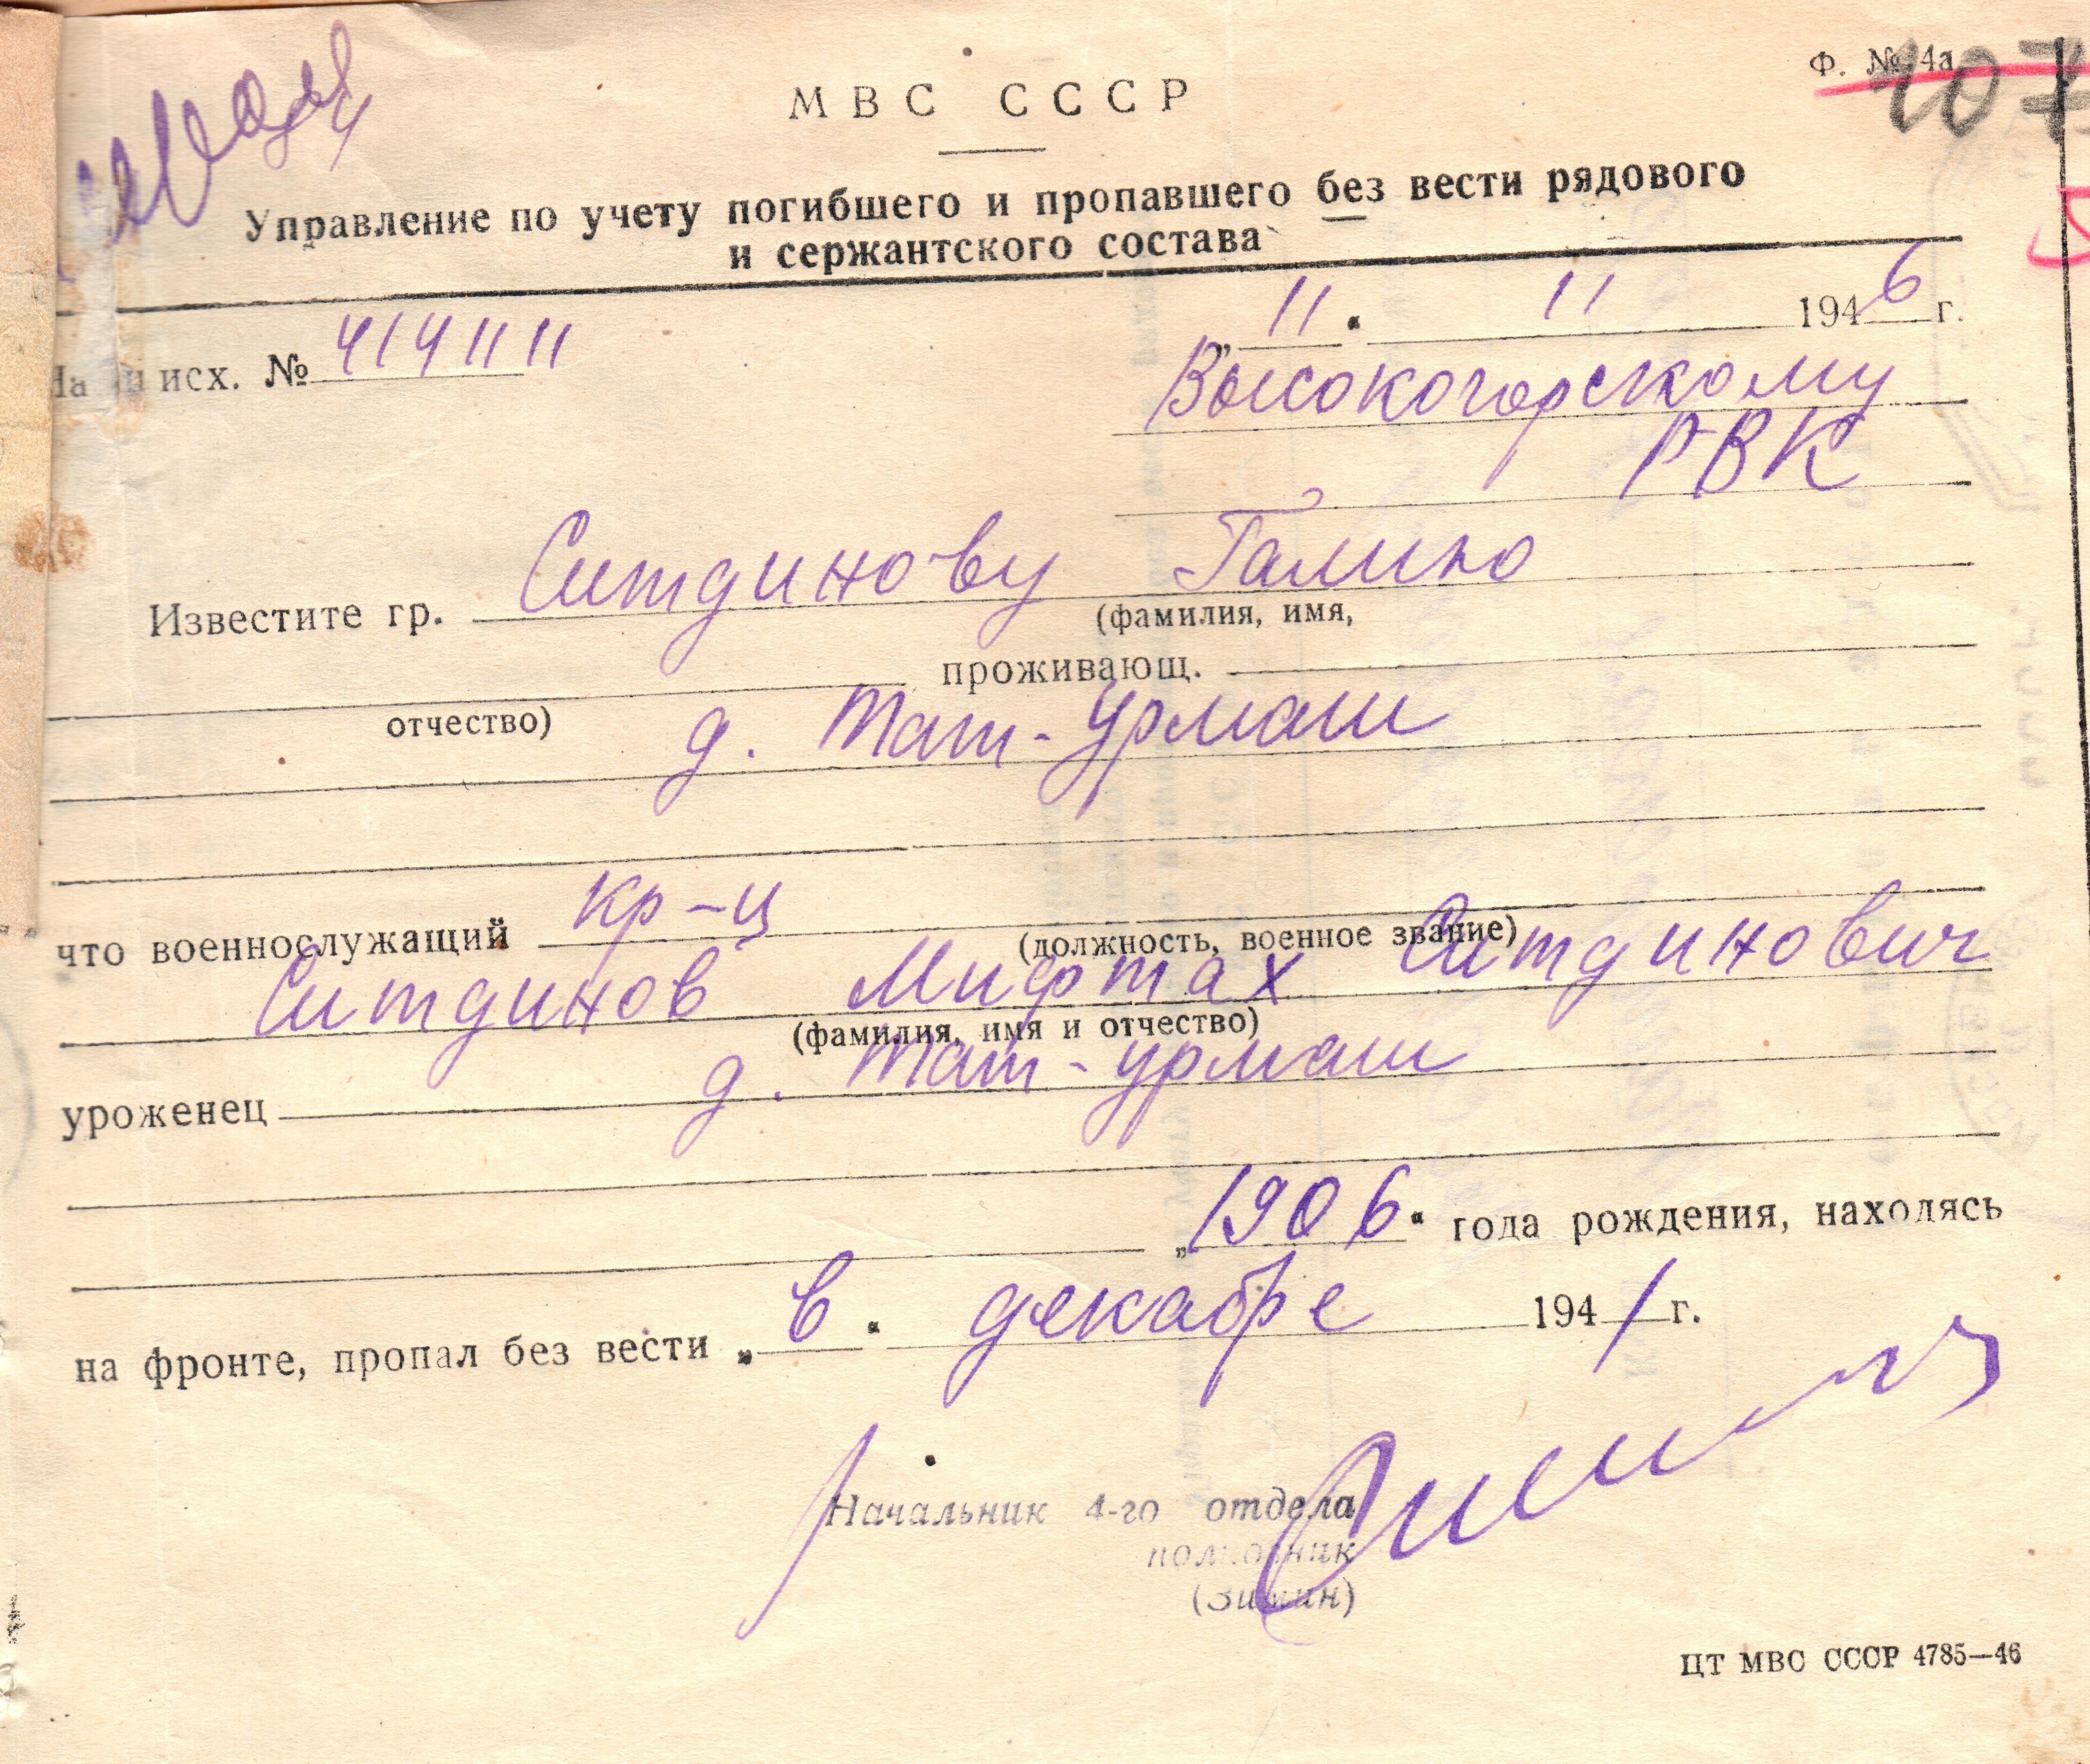 Ф. № 4а
107
МВС СССР
Управление по учету погибшего и пропавшего без вести рядового
и сержантского состава
„11" 11 1946 г.
исх. № 4141111
Высокогорскому
РВК
Известите гр. Ситдинову Галию
(фамилия, имя,
проживающ.
отчество)
д. Тат-Урмаш
что военнослужащий кр-ц
(должность, военное звание)
Ситдинов Мифтах Ситдинович
(фамилия, имя и отчество)
уроженец д. Тат-урмаш
„1906" года рождения, находясь
на фронте, пропал без вести „в" декабре 1941 г.
Начальник 4-го отдела
полковник
(Зимин)
ЦТ МВС СССР 4785—46